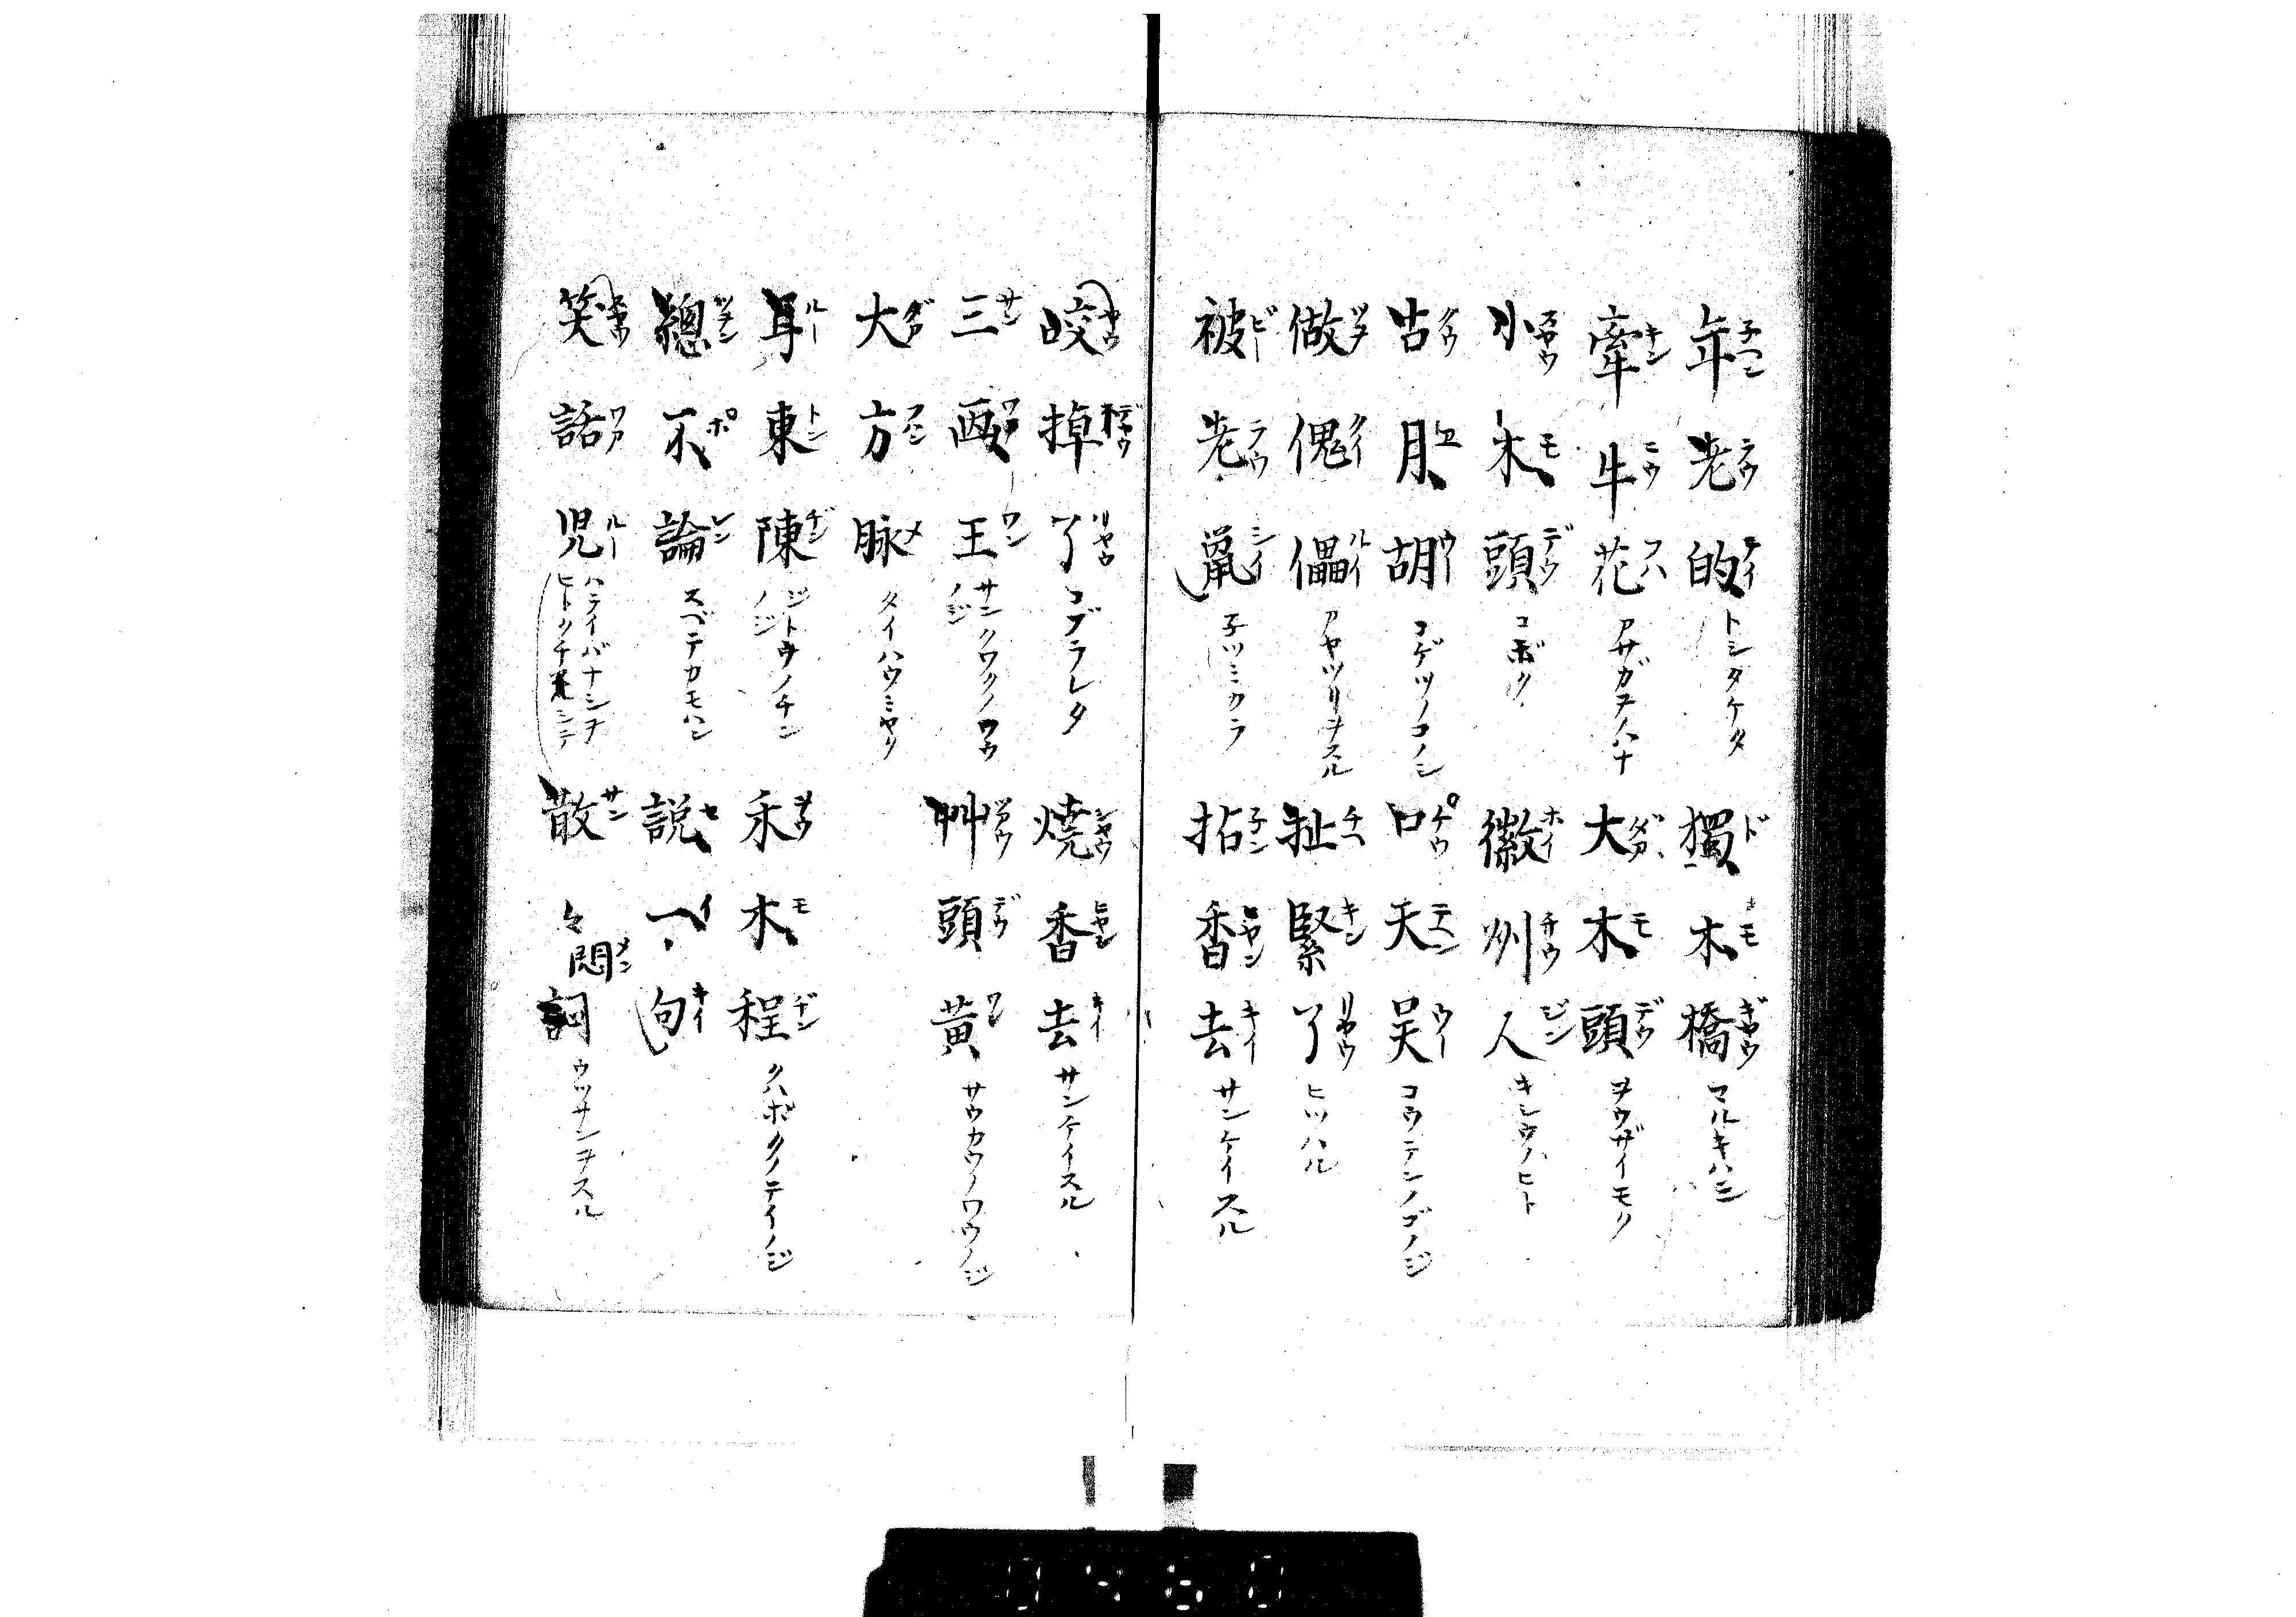 年老的 トシタケタ 獨木橋 マルキハシ
牽牛花 アサガヲノハナ 大木頭 ヲウザイモク
小木頭 コボク 徽州人 キシウノヒト
古月胡 コゲツノコノジ 口天吴 コウテンノゴノジ
做傀儡 アヤツリヲスル 扯緊了 ヒツハル
被老鼠 子ツミカラ 拈香去 サンケイスル
咬掉了 コブラレタ 燒香去 サンケイスル
三画王 サンクワクノワウノジ 艸頭黄 サウカウノワウノジ
大方脉 タイハウミヤク
耳東陳 ジトウノチンノジ 禾木程 クハボクノテイノジ
總不論 スベテカモハン 説一句
笑話児 ハライバナシヲヒトクチ シテ 散々悶 ウツサンヲスル